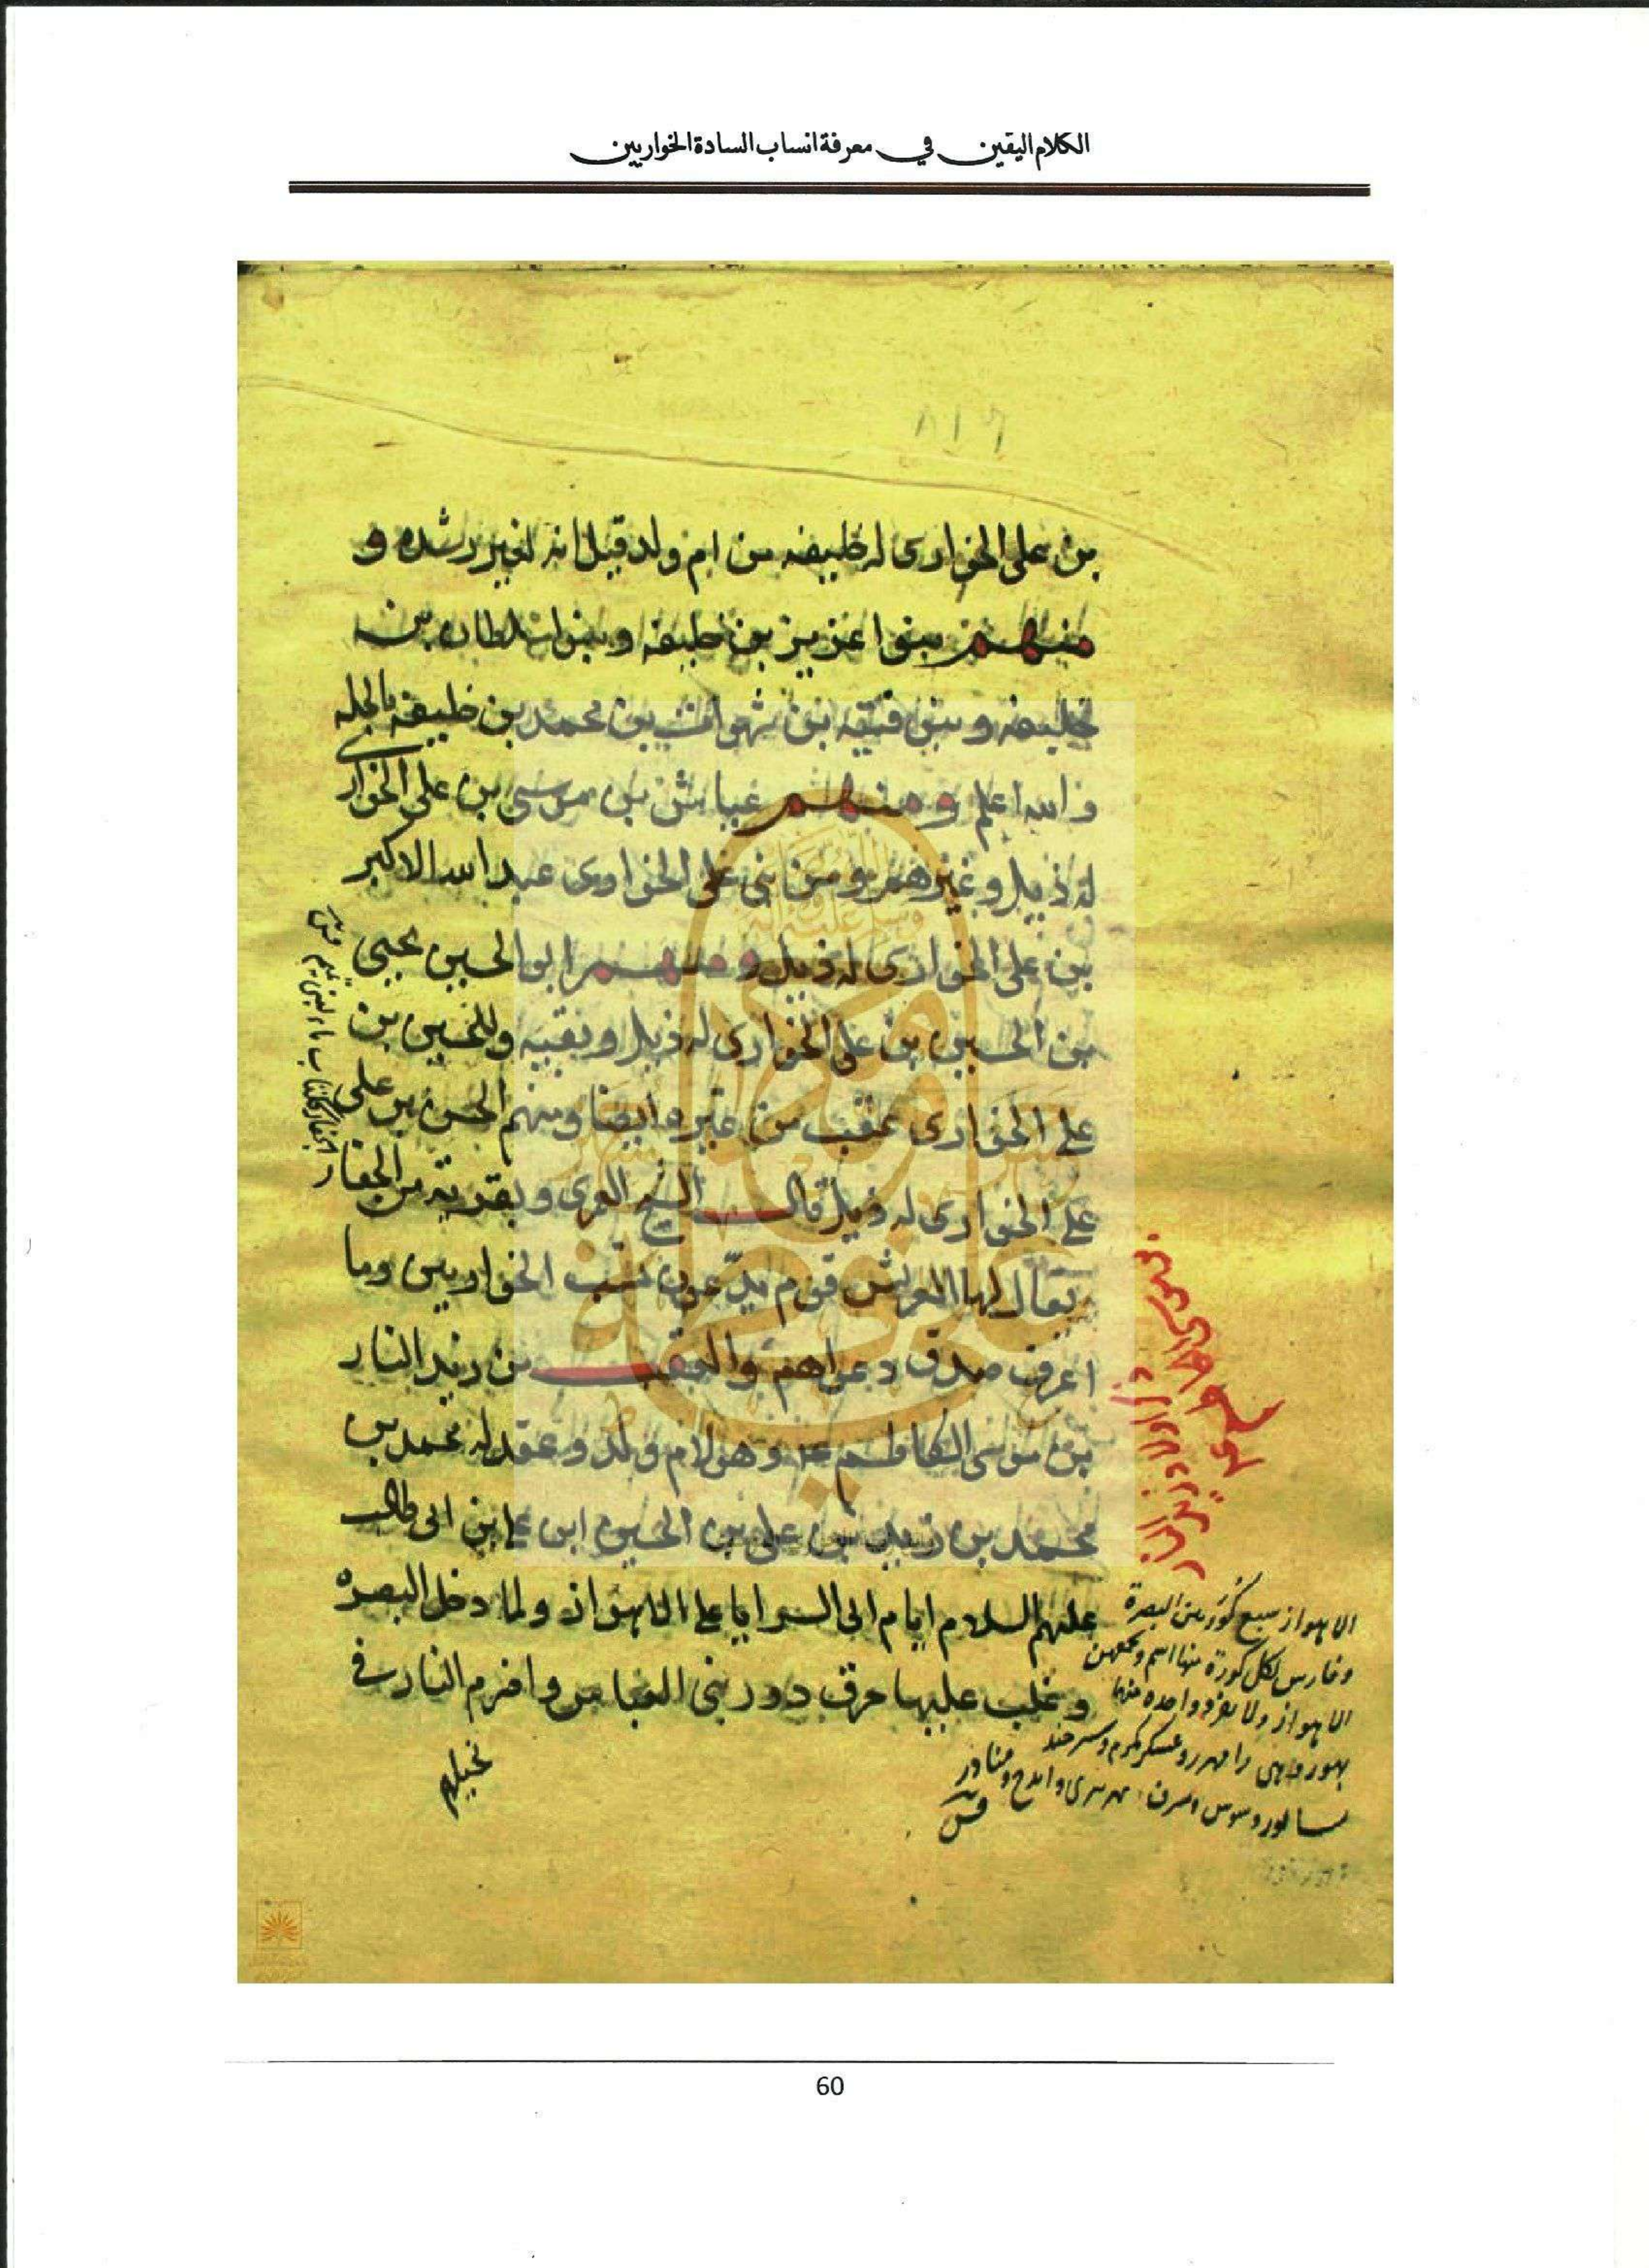 الكلام اليقين في معرفة انساب السادة الخواريين
بن على الخوارى له خليفه من ام ولد قيل انه لغير رشده و
منهم بنوا عزيز بن خليفه وبنوا سلطان بن
خليفه وبنو فتيته بن شهوان بن محمد بن خليفه بالحله
والله اعلم ومنهم غياش بن موسى بن على الخوارى
له ذيل وغيرهم ومن بنى على الخوارى عبد الله الاكبر
بن على الخوارى له ذيل ومنهم ابو الحسين يحيى
بن الحسين بن على الخوارى له ذيل وبقيه وللحسين بن
على الخوارى عقب من غيره ايضا ومنهم الحسن بن على
على الخوارى له ذيل قال الشيخ العمرى وبقريه من الجفار
يقال لها العريش قوم يدّعون نسب الخواريين وما
اعرف صدق دعواهم والعقب من زيد النار
بن موسى الكاظم ع وهو لام ولد وعقد له محمد بن
محمد بن زيد بن على بن الحسين ابن على بن ابى طالب
عليهم السلام ايام ابى السرايا على الاهواز ولما دخل البصره
وغلب عليها حرق دور بنى العباس واضرم النار فى
نخيلهم
الاهواز سبع كور بين البصرة
وفارس لكل كورة منها اسم ويجمعهن
الاهواز ولا يفرد واحده منها
بهوز وهى رامهرمز وعسكر مكرم وتستر وجند
سابور وسوس وسرق ونهر تيرى وايذج ومناذر
ق
60